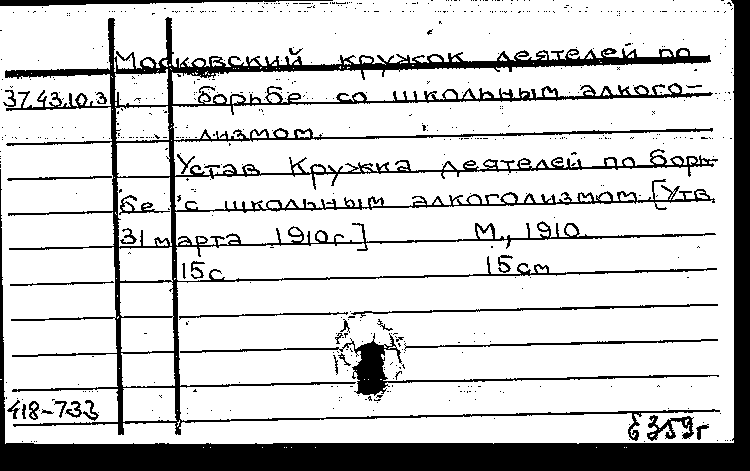 Московский кружок деятелей по
37.43.10.31. борьбе со школьным алкого-
лизмом.
Устав Кружка деятелей по борь-
бе с школьным алкоголизмом. [Утв.
31 марта 1910г.] М., 1910.
15с 15см
418-733
Е359г